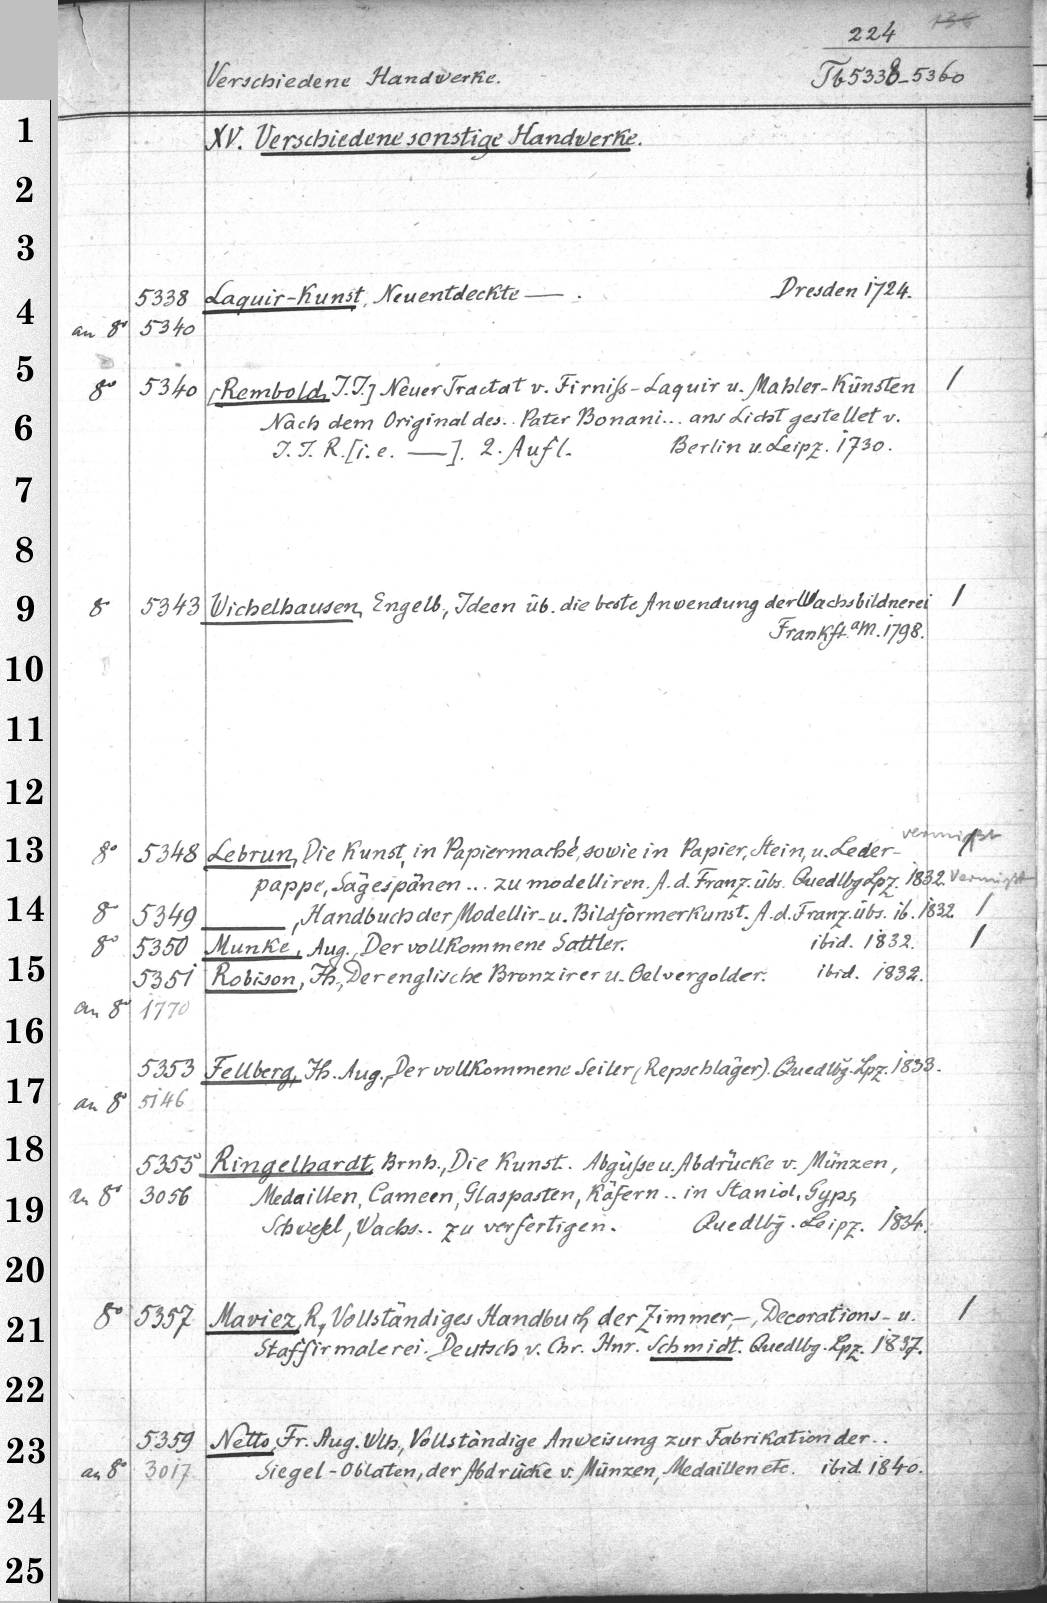 224 136
Verschiedene Handwerke. Tb5338-5360
1 XV. Verschiedene sonstige Handwerke.
2
3
5338 Laquir-Kunst, Neuentdeckte —. Dresden 1724.
4
an 8° 5340
5
8° 5340 [Rembold, J.J.] Neuer Tractat v. Firniß- Laquir u. Mahler-Künsten /
6 Nach dem Original des.. Pater Bonani... ans Licht gestellet v.
J. J. R. [i. e. —]. 2. Aufl. Berlin u. Leipz. 1730.
7
8
9 8° 5343 Wichelhausen, Engelb., Ideen üb. die beste Anwendung der Wachsbildnerei /
Frankft a/M. 1798.
10
11
12
vermißt
13 8° 5348 Lebrun, Die Kunst, in Papiermaché, sowie in Papier, Stein, u. Leder- /
pappe, Sägespänen ... zu modelliren. A. d. Franz. übs. Quedlbg Lpz. 1832. vermißt
14 8° 5349 ——, Handbuch der Modellir- u. Bildformerkunst. A. d. Franz. übs. ib. 1832 /
8° 5350 Munke, Aug., Der vollkommene Sattler. ibid. 1832. /
15 5351 Robison, Th., Der englische Bronzirer u. Oelvergolder. ibid. 1832.
an 8° 1770
16
5353 Fellberg, Th. Aug., Der vollkommene Seiler (Repschläger). Quedlbg. Lpz. 1833.
17 an 8° 5146
18
5355 Ringelhardt, Brnh., Die Kunst. Abgüsse u. Abdrücke v. Münzen,
19 an 8° 3056 Medaillen, Cameen, Glaspasten, Käfern .. in Staniol, Gyps,
Schwefel, Wachs.. zu verfertigen. Quedlbg. Leipz. 1834.
20
21 8° 5357 Maviez, R., Vollständiges Handbuch der Zimmer-, Decorations- u. /
Staffirmalerei. Deutsch v. Chr. Hnr. Schmidt. Quedlbg. Lpz. 1837.
22
23 5359 Netto, Fr. Aug. Wlh., Vollständige Anweisung zur Fabrikation der..
an 8° 3017 Siegel-Oblaten, der Abdrücke v. Münzen, Medaillen etc. ibid. 1840.
24
25